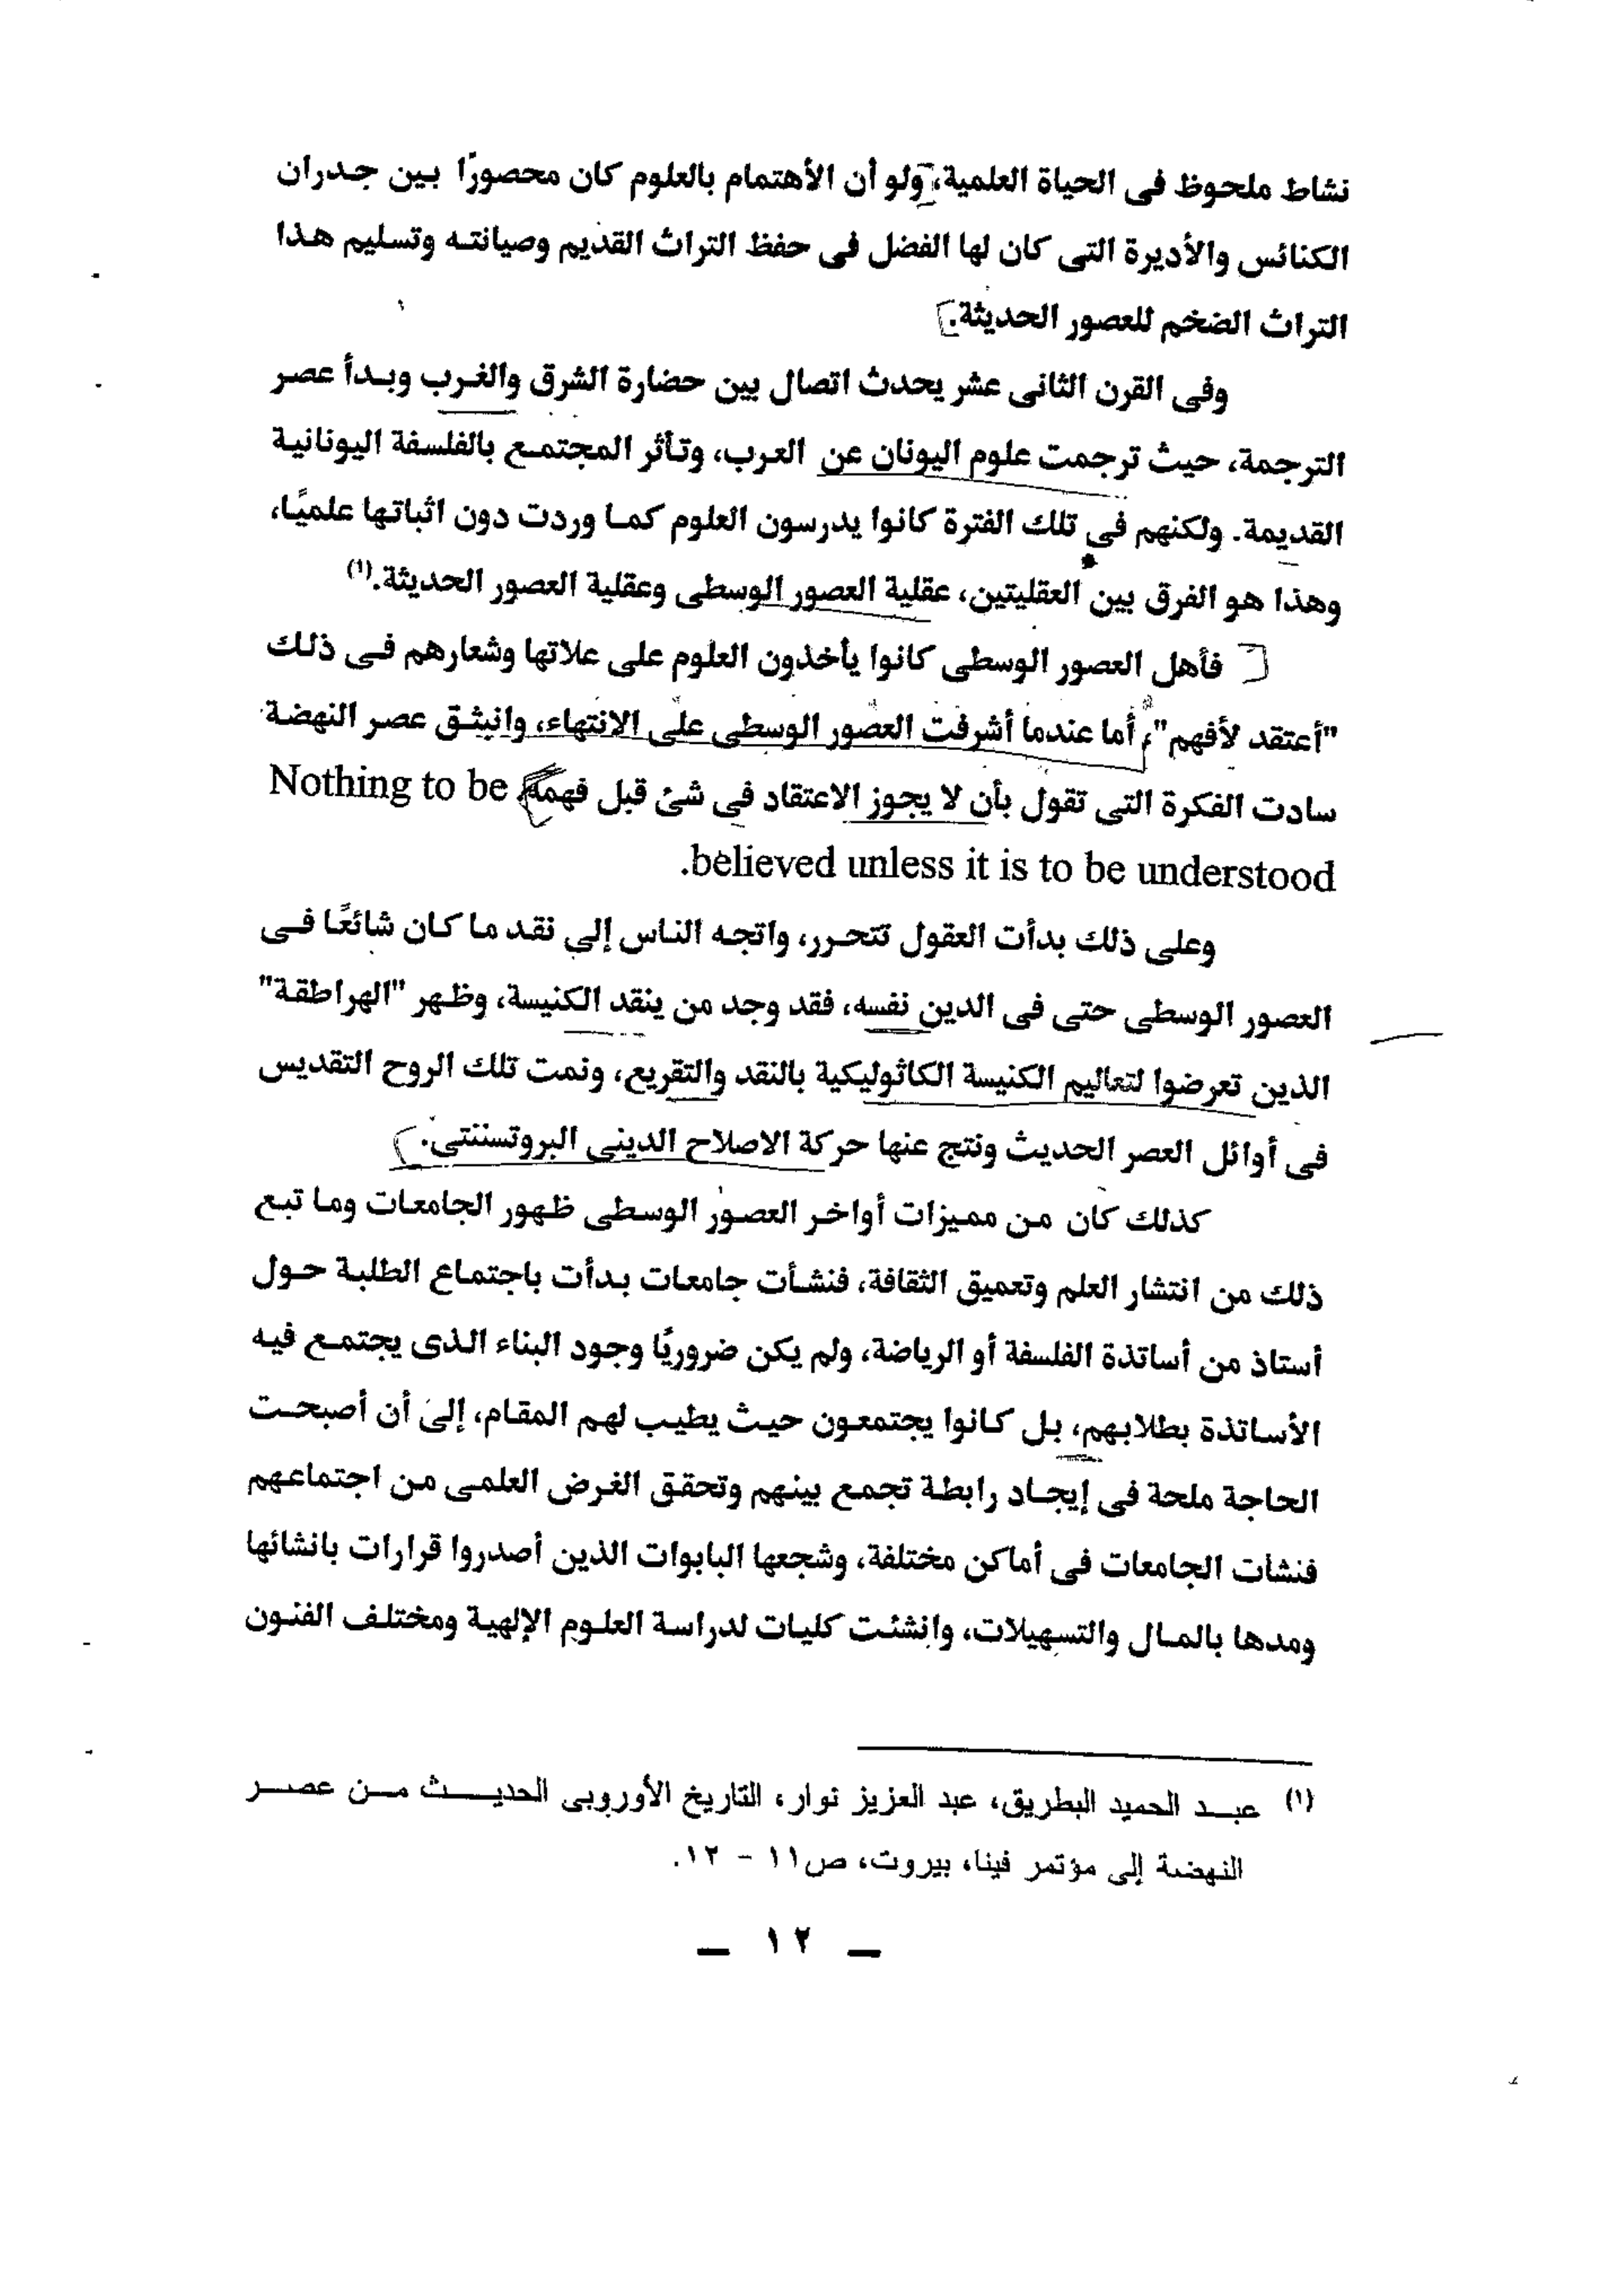 نشاط ملحوظ فى الحياة العلمية، ولو أن الأهتمام بالعلوم كان محصورًا بين جدران
الكنائس والأديرة التى كان لها الفضل فى حفظ التراث القديم وصيانته وتسليم هذا
التراث الضخم للعصور الحديثة.
وفى القرن الثانى عشر يحدث اتصال بين حضارة الشرق والغرب وبدأ عصر
الترجمة، حيث ترجمت علوم اليونان عن العرب، وتأثر المجتمع بالفلسفة اليونانية
القديمة. ولكنهم فى تلك الفترة كانوا يدرسون العلوم كما وردت دون اثباتها علميًا،
وهذا هو الفرق بين العقليتين، عقلية العصور الوسطى وعقلية العصور الحديثة.(١)
فأهل العصور الوسطى كانوا يأخذون العلوم على علاتها وشعارهم فى ذلك
"أعتقد لأفهم"، أما عندما أشرفت العصور الوسطى على الانتهاء، وانبثق عصر النهضة
سادت الفكرة التى تقول بأن لا يجوز الاعتقاد فى شئ قبل فهمه Nothing to be
believed unless it is to be understood.
وعلى ذلك بدأت العقول تتحرر، واتجه الناس إلى نقد ما كان شائعًا فى
العصور الوسطى حتى فى الدين نفسه، فقد وجد من ينقد الكنيسة، وظهر "الهراطقة"
الذين تعرضوا لتعاليم الكنيسة الكاثوليكية بالنقد والتقريع، ونمت تلك الروح التقديس
فى أوائل العصر الحديث ونتج عنها حركة الاصلاح الدينى البروتسننتى.
كذلك كان من مميزات أواخر العصور الوسطى ظهور الجامعات وما تبع
ذلك من انتشار العلم وتعميق الثقافة، فنشأت جامعات بدأت باجتماع الطلبة حول
أستاذ من أساتذة الفلسفة أو الرياضة، ولم يكن ضروريًا وجود البناء الذى يجتمع فيه
الأساتذة بطلابهم، بل كانوا يجتمعون حيث يطيب لهم المقام، إلى أن أصبحت
الحاجة ملحة فى إيجاد رابطة تجمع بينهم وتحقق الغرض العلمى من اجتماعهم
فنشات الجامعات فى أماكن مختلفة، وشجعها البابوات الذين أصدروا قرارات بانشائها
ومدها بالمال والتسهيلات، وانشئت كليات لدراسة العلوم الإلهية ومختلف الفنون
(١) عبد الحميد البطريق، عبد العزيز نوار، التاريخ الأوروبى الحديث من عصر
النهضة إلى مؤتمر فينا، بيروت، ص١١ - ١٢.
— ١٢ —